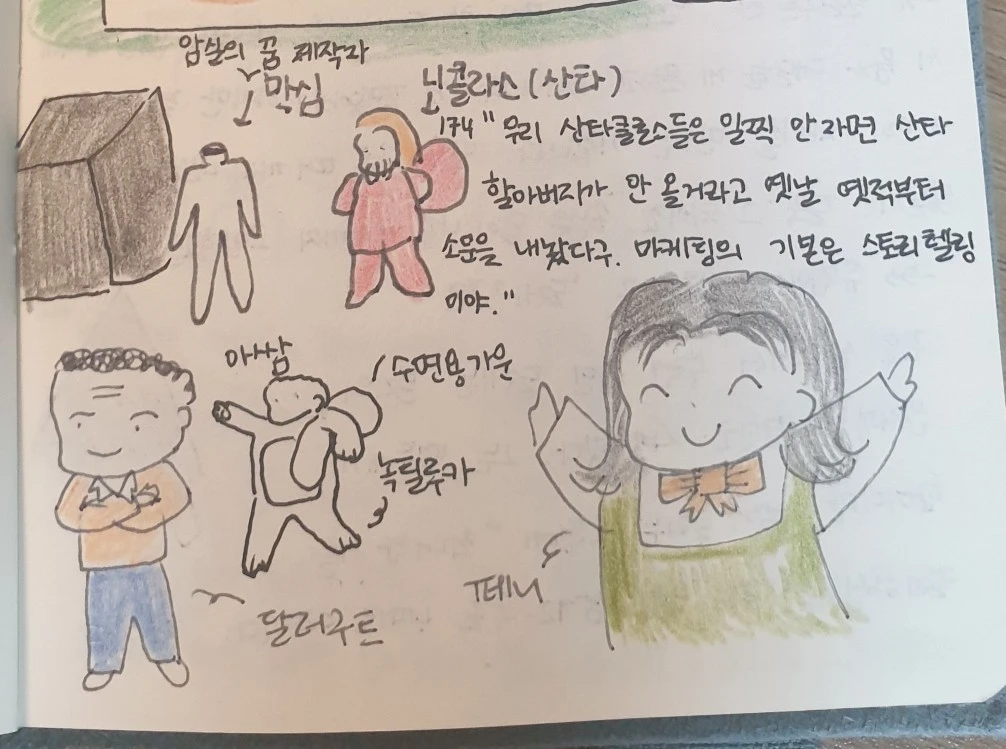 암실의 꿈 제작자
막심
니콜라스 (산타)
174 "우리 산타클로스들은 일찍 안 자면 산타
할아버지가 안 올거라고 옛날 옛적부터
소문을 내놨다구. 마케팅의 기본은 스토리텔링
이야."
아쌈
수면용가운
녹틸루카
페니
달러구트